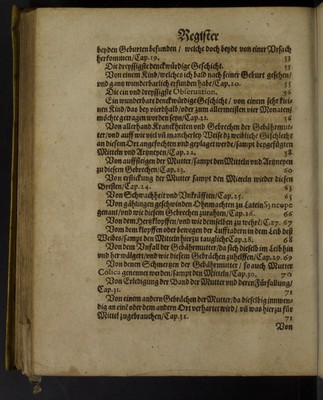 Register
beyden Geburten befunden / welche doch beyde von einer Vrsach
herkommen / Cap. 19. 53
Die dreyssigste denckwürdige Geschicht. 55
Von einem Kind / welches ich bald nach seiner Geburt gesehen /
vnd gantz wunderbarlich erfunden habe / Cap. 20. 55
Die ein vnd dreyssigste Observation. 56
Ein wunderbare denckwürdige Geschicht / von einem sehr klei-
nen Kind / das bey vierdhalb / oder zum allermeisten vier Monaten /
möchte getragen worden seyn / Cap. 21. 56
Von allerhand Kranckheiten vnd Gebrechen der Gebährmut-
ter / vnd auff wie viel vñ mancherley Weise dz weiblich Gschlecht
an diesem Ort angefochten vnd geplaget werde / sampt beygefügten
Mitteln vnd Artzneyen / Cap. 22. 58
Von auffsteigen der Mutter / sampt den Mitteln vnd Artzneyen
zu diesem Gebrechen / Cap. 23. 60
Von erstickung der Mutter sampt den Mitteln wieder diesen
Bresten / Cap. 24. 63
Von Schwachheit vnd Vnkräfften / Cap. 25. 65
Von gählingen geschwinden Ohnmachten zu Latein Syncope
genant / vnd wie diesem Gebrechen zurathen / Cap. 26. 66
Von dem Hertzklopffen / vnd wie demselben zu wehrẽ / Ca. 27. 67
Vom dem klopffen oder bewegen der Lufftadern in dem Leib deß
Weibes / sampt den Mitteln hierzu tauglich Cap. 28. 68
Von dem Vnfall der Gebährmutter / da sich dieselb im Leib hin
vnd her wälget / vnd wie diesem Gebrächen zuhelffen / Cap. 29. 69
Von denen Schmertzen der Gebährmutter / so auch Mutter
Colica genennet werden / sampt den Mitteln / Cap. 30. 70
Von Erledigung der Band der Mutter vnd deren Fürfallung /
Cap. 31. 71
Von einem andern Gebrächen der Mutter / da dieselbig inwen-
dig an eine oder dem andern Ort verhartet wird / vñ was hierzu für
Mittel zugebrauchen / Cap. 31. 71
Von